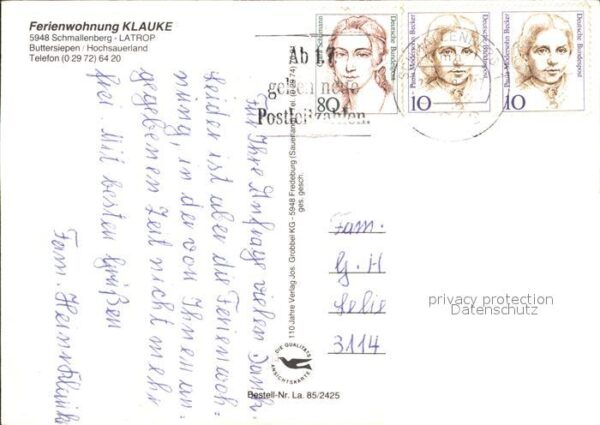 Ferienwohnung KLAUKE
5948 Schmallenberg - LATROP
Buttersiepen / Hochsauerland
Telefon (0 29 72) 64 20
Für Ihre Anfrage vielen Dank.
Leider ist aber die Ferienwoh-
nung, in der von Ihnen an-
gegebenen Zeit nicht mehr
frei. Mit besten Grüßen
Fam. Heinr. Klauke
110 Jahre Verlag Jos. Grobbel KG - 5948 Fredeburg (Sauerland)
ges. gesch.
DIE QUALITÄTS
ANSICHTSKARTE
Bestell-Nr. La. 85/2425
Ab 1.7.
geben neue
Postleitzahlen.
80
Deutsche Bundespost
10
Paula Modersohn-Becker
Deutsche Bundespost
10
Paula Modersohn-Becker
Deutsche Bundespost
Fam.
G. H
3114
privacy protection
Datenschutz